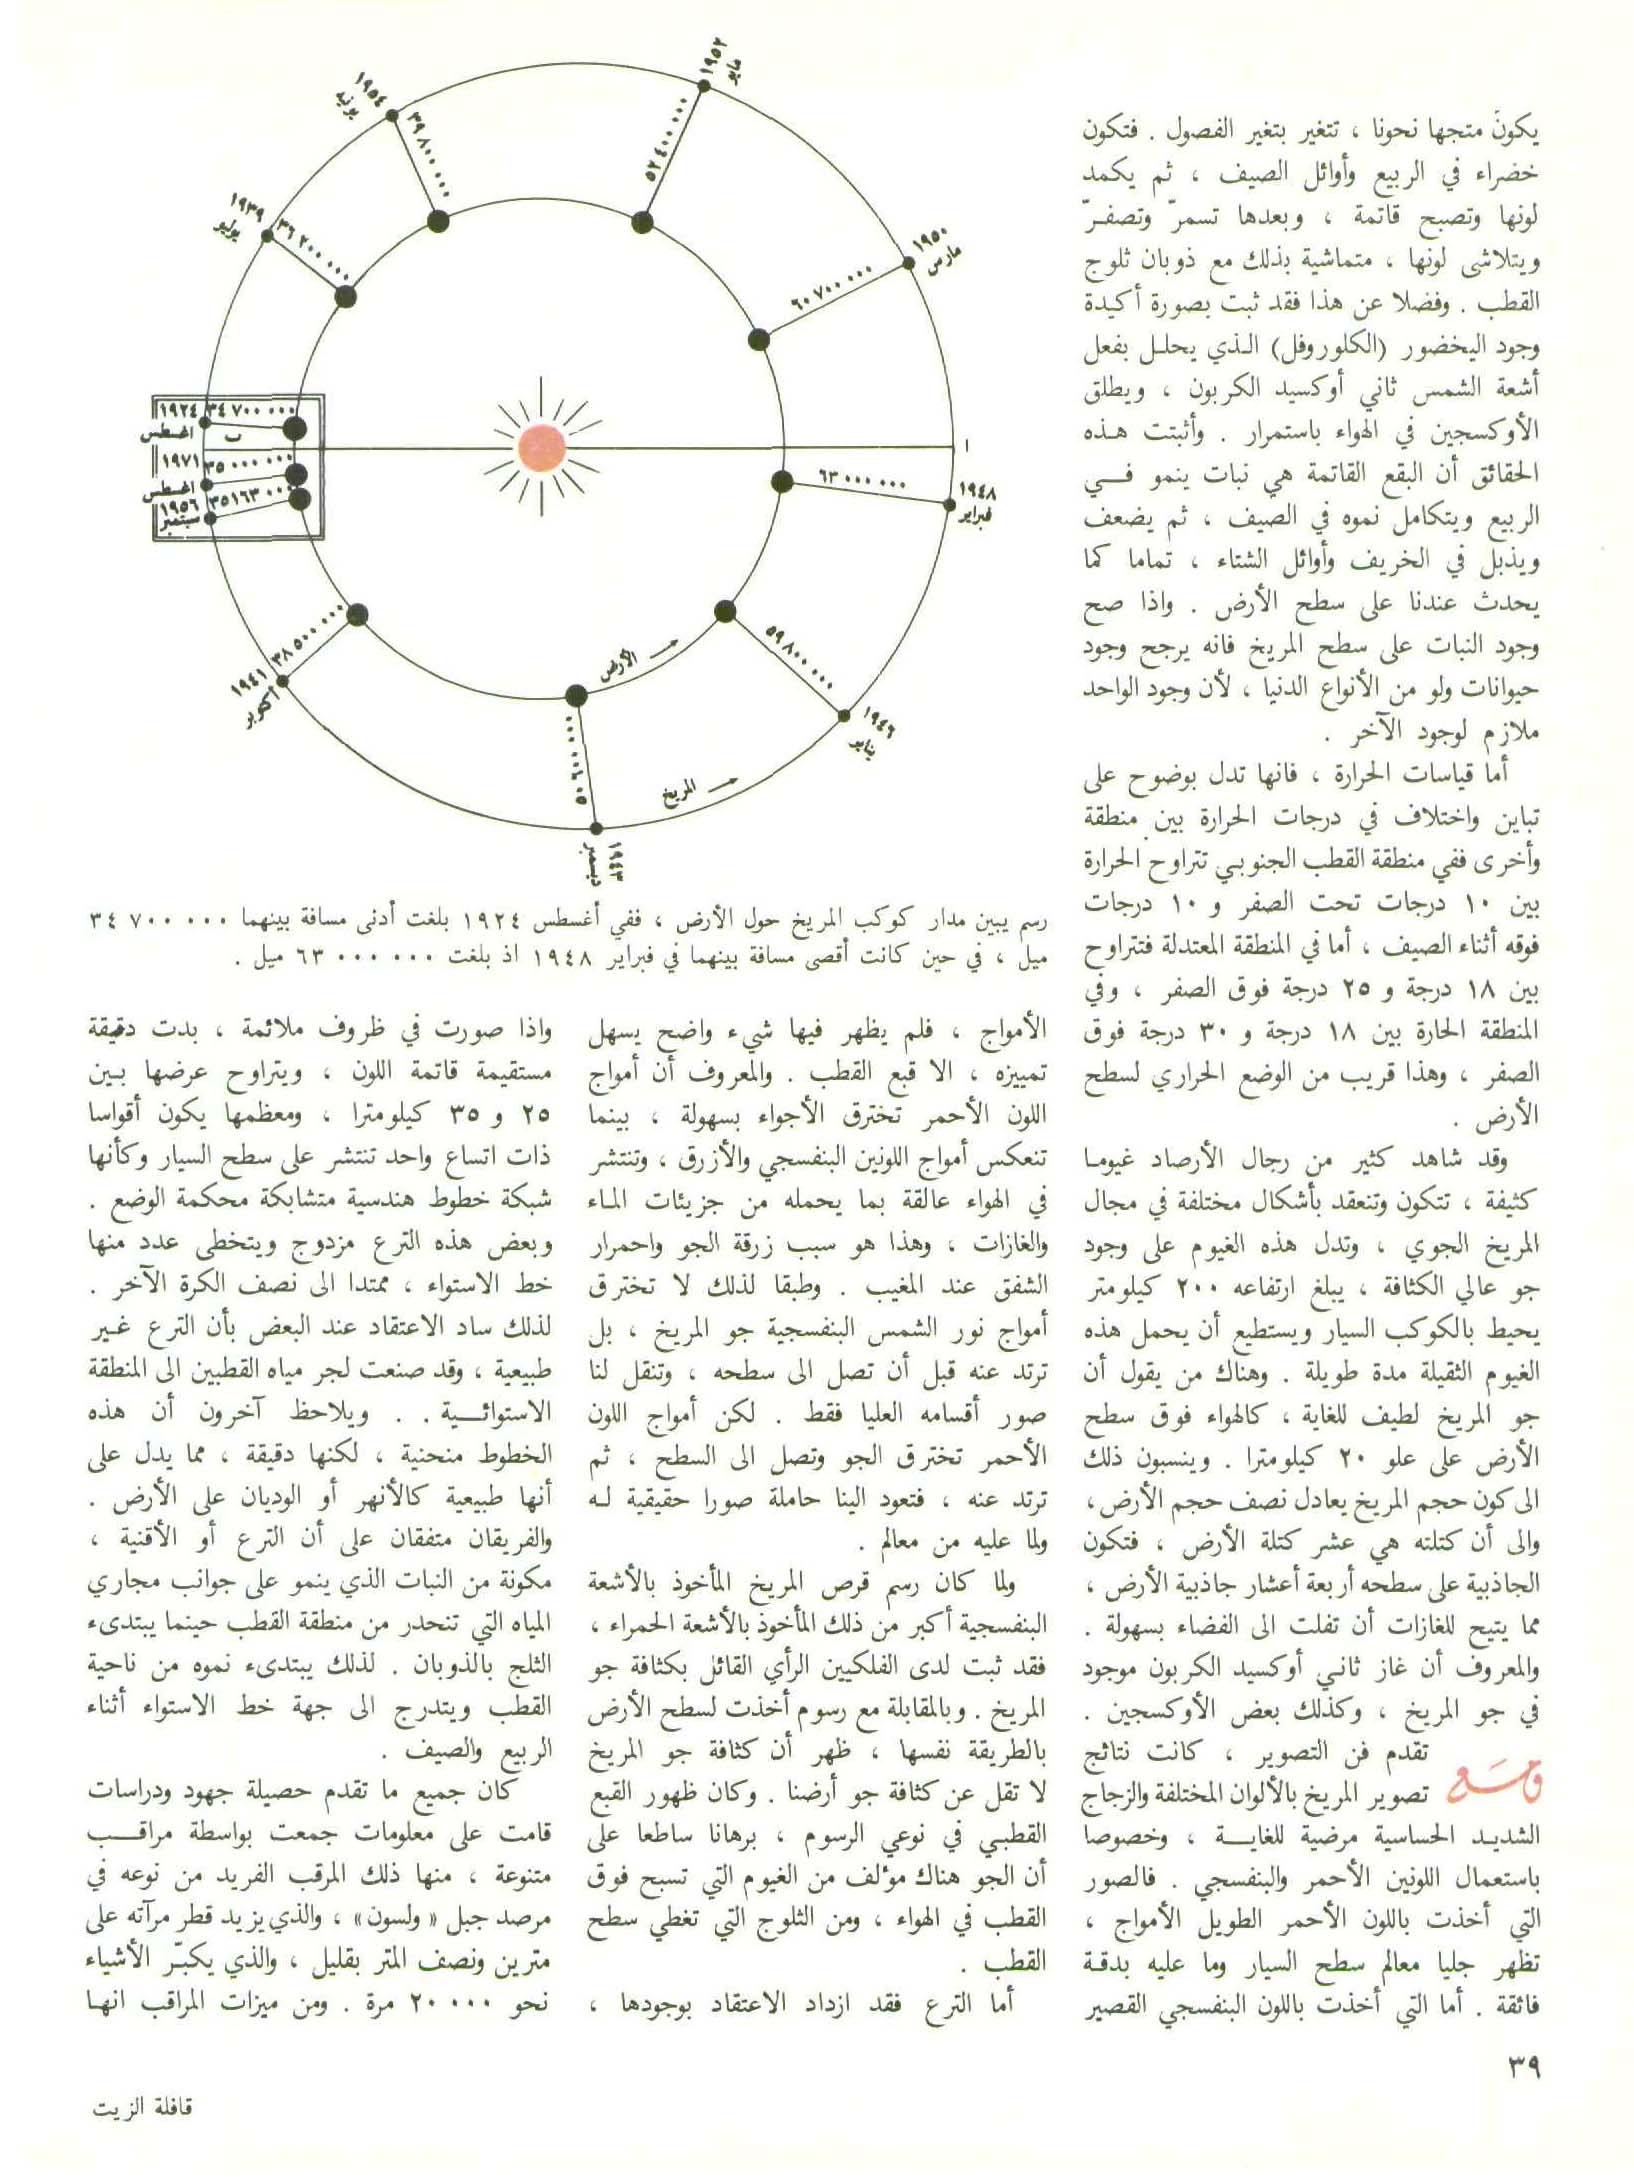 يكونَ متجها نحونا ، تتغير بتغير الفصول . فتكون
خضراء في الربيع وأوائل الصيف ، ثم يكمد
لونها وتصبح قاتمة ، وبعدها تسمرّ وتصفـرّ
ويتلاشى لونها ، متماشية بذلك مع ذوبان ثلوج
القطب . وفضلا عن هذا فقد ثبت بصورة أكيدة
وجود اليخضور (الكلوروفل) الـذي يحلـل بفعل
أشعة الشمس ثاني أوكسيد الكربون ، ويطلق
الأوكسجين في الهواء باستمرار . وأثبتت هـذه
الحقائق أن البقع القاتمة هي نبات ينمو فـــي
الربيع ويتكامل نموه في الصيف ، ثم يضعف
ويذبل في الخريف وأوائل الشتاء ، تماما كما
يحدث عندنا على سطح الأرض . واذا صح
وجود النبات على سطح المريخ فانه يرجح وجود
حيوانات ولو من الأنواع الدنيا ، لأن وجود الواحد
ملازم لوجود الآخر .
أما قياسات الحرارة ، فانها تدل بوضوح على
تباين واختلاف في درجات الحرارة بين منطقة
وأخرى ففي منطقة القطب الجنوبي تتراوح الحرارة
بين ١٠ درجات تحت الصفر و ١٠ درجات
فوقه أثناء الصيف ، أما في المنطقة المعتدلة فتتراوح
بين ١٨ درجة و ٢٥ درجة فوق الصفر ، وفي
المنطقة الحارة بين ١٨ درجة و ٣٠ درجة فوق
الصفر ، وهذا قريب من الوضع الحراري لسطح
الأرض .
وقد شاهد كثير من رجال الأرصاد غيومـا
كثيفة ، تتكون وتنعقد بأشكال مختلفة في مجال
المريخ الجوي ، وتدل هذه الغيوم على وجود
جو عالي الكثافة ، يبلغ ارتفاعه ٢٠٠ كيلومتر
يحيط بالكوكب السيار ويستطيع أن يحمل هذه
الغيوم الثقيلة مدة طويلة . وهناك من يقول أن
جو المريخ لطيف للغاية ، كالهواء فوق سطح
الأرض على علو ٢٠ كيلومترا . وينسبون ذلك
الى كون حجم المريخ يعادل نصف حجم الأرض ،
والى أن كتلته هي عشر كتلة الأرض ، فتكون
الجاذبية على سطحه أربعة أعشار جاذبية الأرض ،
مما يتيح للغازات أن تفلت الى الفضاء بسهولة .
والمعروف أن غاز ثانـي أوكسيد الكربون موجود
في جو المريخ ، وكذلك بعض الأوكسجين .
ومـع تقدم فن التصوير ، كانت نتائج
تصوير المريخ بالألوان المختلفة والزجاج
الشديـد الحساسية مرضية للغايــة ، وخصوصا
باستعمال اللونين الأحمر والبنفسجي . فالصور
التي أخذت باللون الأحمر الطويل الأمواج ،
تظهر جليا معالم سطح السيار وما عليه بدقـة
فائقة . أما التي أخذت باللون البنفسجي القصير
١٩٥٢
مايو
٥٢ ٤٠٠ ٠٠٠
١٩٥٤
يونيه
٣٩ ٨٠٠ ٠٠٠
١٩٣٩
يوليو
٣٦ ٢٠٠ ٠٠٠
١٩٥٠
مارس
٦٠ ٧٠٠ ٠٠٠
١٩٢٤
اغسطس
٣٤ ٧٠٠ ٠٠٠
ب
ا
١٩٧١
اغسطس
٣٥ ٠٠٠ ٠٠٠
١٩٥٦
سبتمبر
٣٥١٦٣ ٠٠٠
١٩٤٨
فبراير
٦٣ ٠٠٠ ٠٠٠
١٩٤١
أكتوبر
٣٨ ٥٠٠ ٠٠٠
الأرض
٥٩ ٨٠٠ ٠٠٠
١٩٤٦
يناير
المريخ
١٩٤٣
ديسمبر
رسم يبين مدار كوكب المريخ حول الأرض ، ففي أغسطس ١٩٢٤ بلغت أدنى مسافة بينهما ٣٤ ٧٠٠ ٠٠٠
ميل ، في حين كانت أقصى مسافة بينهما في فبراير ١٩٤٨ اذ بلغت ٦٣ ٠٠٠ ٠٠٠ ميل .
الأمواج ، فلم يظهر فيها شيء واضح يسهل
تمييزه ، الا قبع القطب . والمعروف أن أمواج
اللون الأحمر تخترق الأجواء بسهولة ، بينما
تنعكس أمواج اللونين البنفسجي والأزرق ، وتنتشر
في الهواء عالقة بما يحمله من جزيئات المـاء
والغازات ، وهذا هو سبب زرقة الجو واحمرار
الشفق عند المغيب . وطبقا لذلك لا تخترق
أمواج نور الشمس البنفسجية جو المريخ ، بل
ترتد عنه قبل أن تصل الى سطحه ، وتنقل لنا
صور أقسامه العليا فقط . لكن أمواج اللون
الأحمر تخترق الجو وتصل الى السطح ، ثم
ترتد عنه ، فتعود الينا حاملة صورا حقيقية لـه
ولما عليه من معالم .
ولما كان رسم قرص المريخ المأخوذ بالأشعة
البنفسجية أكبر من ذلك المأخوذ بالأشعة الحمراء ،
فقد ثبت لدى الفلكيين الرأي القائل بكثافة جو
المريخ . وبالمقابلة مع رسوم أخذت لسطح الأرض
بالطريقة نفسها ، ظهر أن كثافة جو المريخ
لا تقل عن كثافة جو أرضنا . وكان ظهور القبع
القطبـي في نوعي الرسوم ، برهانا ساطعا على
أن الجو هناك مؤلف من الغيوم التي تسبح فوق
القطب في الهواء ، ومن الثلوج التي تغطي سطح
القطب .
أما الترع فقد ازداد الاعتقاد بوجودها ،
واذا صورت في ظروف ملائمة ، بدت دقيقة
مستقيمة قاتمة اللون ، ويتراوح عرضها بـين
٢٥ و ٣٥ كيلومترا ، ومعظمها يكون أقواسا
ذات اتساع واحد تنتشر على سطح السيار وكأنها
شبكة خطوط هندسية متشابكة محكمة الوضع .
وبعض هذه الترع مزدوج ويتخطى عدد منها
خط الاستواء ، ممتدا الى نصف الكرة الآخر .
لذلك ساد الاعتقاد عند البعض بأن الترع غـير
طبيعية ، وقد صنعت لجر مياه القطبين الى المنطقة
الاستوائـــية . . ويلاحظ آخرون أن هذه
الخطوط منحنية ، لكنها دقيقة ، مما يدل على
أنها طبيعية كالأنهر أو الوديان على الأرض .
والفريقان متفقان على أن الترع أو الأقنية ،
مكونة من النبات الذي ينمو على جوانب مجاري
المياه التي تنحدر من منطقة القطب حينما يبتدىء
الثلج بالذوبان . لذلك يبتدىء نموه من ناحية
القطب ويتدرج الى جهة خط الاستواء أثناء
الربيع والصيف .
كان جميع ما تقدم حصيلة جهود ودراسات
قامت على معلومات جمعت بواسطة مراقـــب
متنوعة ، منها ذلك المرقب الفريد من نوعه في
مرصد جبل « ولسون» ، والذي يزيد قطر مرآته على
مترين ونصف المتر بقليل ، والذي يكبـّر الأشياء
نحو ٢٠ ٠٠٠ مرة . ومن ميزات المراقب انهـا
٣٩
قافلة الزيت